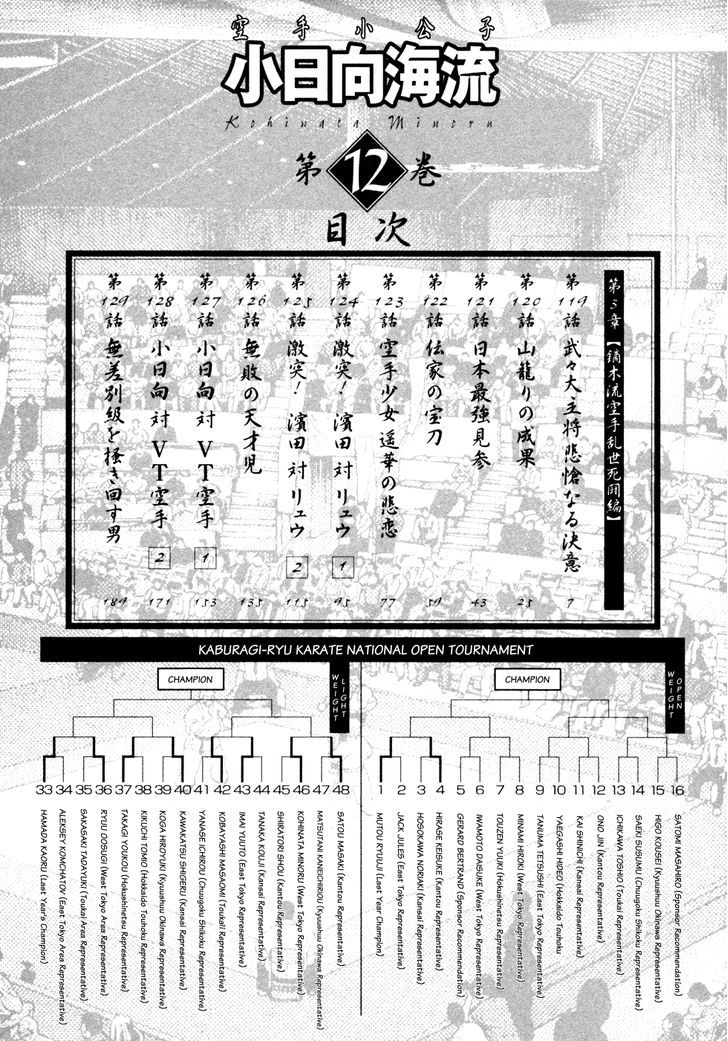 空手小公子
小日向海流
Kohinata Minoru
第12巻
目次
第5章【鏑木流空手乱世死闘編】
第119話 武々大主将悲愴なる決意 7
第120話 山籠りの成果 25
第121話 日本最強見参 43
第122話 伝家の宝刀 59
第123話 空手少女遥華の悲恋 77
第124話 激突! 濱田対リュウ 1 95
第125話 激突! 濱田対リュウ 2 115
第126話 無敗の天才児 135
第127話 小日向対VT空手 1 153
第128話 小日向対VT空手 2 171
第129話 無差別級を掻き回す男 189
KABURAGI-RYU KARATE NATIONAL OPEN TOURNAMENT
CHAMPION
LIGHT WEIGHT
33 HAMADA KAORU (Last Year's Champion)
34 ALEKSEY KOMCHATOV (East Tokyo Area Representative)
35 SAKASAKI TADAYUKI (Toukai Area Representative)
36 RYUU OOSUGI (West Tokyo Area Representative)
37 TAKAGI YOUKOU (Hokushinetsu Representative)
38 KIKUCHI TOMO (Hokkaido Touhoku Representative)
39 KOGA HIROYUKI (Kyuushuu Okinawa Representative)
40 KAWAKATSU SHIGERU (Kansai Representative)
41 YANASE ICHIROU (Chuugoku Shikoku Representative)
42 KOBAYASHI MASAOMI (Toukai Representative)
43 IMAI YUUTO (East Tokyo Representative)
44 TANAKA KOUJI (Kansai Representative)
45 SHIRATORI SHOU (Kantou Representative)
46 KOHINATA MINORU (West Tokyo Representative)
47 MATSUTANI KANEICHIROU (Kyuushuu Okinawa Representative)
48 SATOU MASAKI (Kantou Representative)
CHAMPION
OPEN WEIGHT
1 MUTOU RYUUJI (Last Year Champion)
2 JACK JULES (East Tokyo Representative)
3 HOSOKAWA NORIAKI (Kansai Representative)
4 HIRASE KEISUKE (Kantou Representative)
5 GERARD BERTRAND (Sponsor Recommendation)
6 IWAMOTO DAISUKE (West Tokyo Representative)
7 TOUZEN YUUKI (Hokushinetsu Representative)
8 MINAMI HIROKI (West Tokyo Representative)
9 TANUMA TETSUSHI (East Tokyo Representative)
10 YAEGASHI HIDEO (Hokkaido Touhoku
11 KAI SHINICHI (Kansai Representative)
12 ONO JIN (Kantou Representative)
13 ICHIKAWA TOSHIO (Toukai Representative)
14 SAEKI SUSUMU (Chuugoku Shikoku Representative)
15 HIGO KOUSEI (Kyuushuu Okinawa Representative)
16 SATOMI MASAHIRO (Sponsor Recommendation)